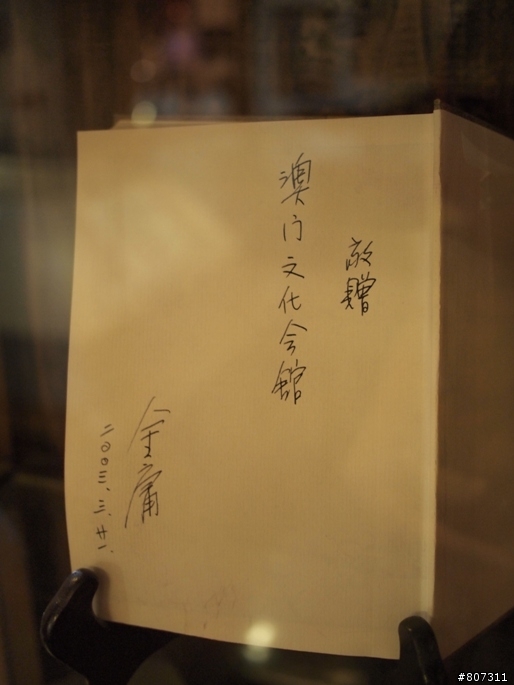 敬贈
澳门文化会館
金庸
二〇〇三、三、廿一、
#807311